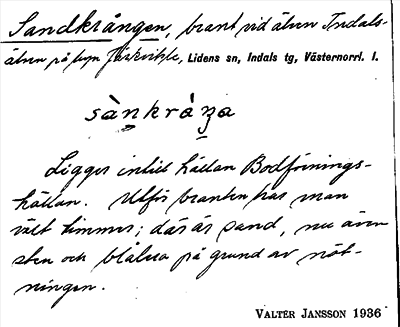 Sandkrången, brant vid älven Indals-
älven på byn Järkvitsle, Lidens sn, Indals tg, Västernorrl. l.
sànkràŋa
Ligger intill hällan Bodförings-
hällan. Utför branten har man
vält timmer; där är sand, nu även
sten och blålera på grund av nöt-
ningen.
VALTER JANSSON 1936